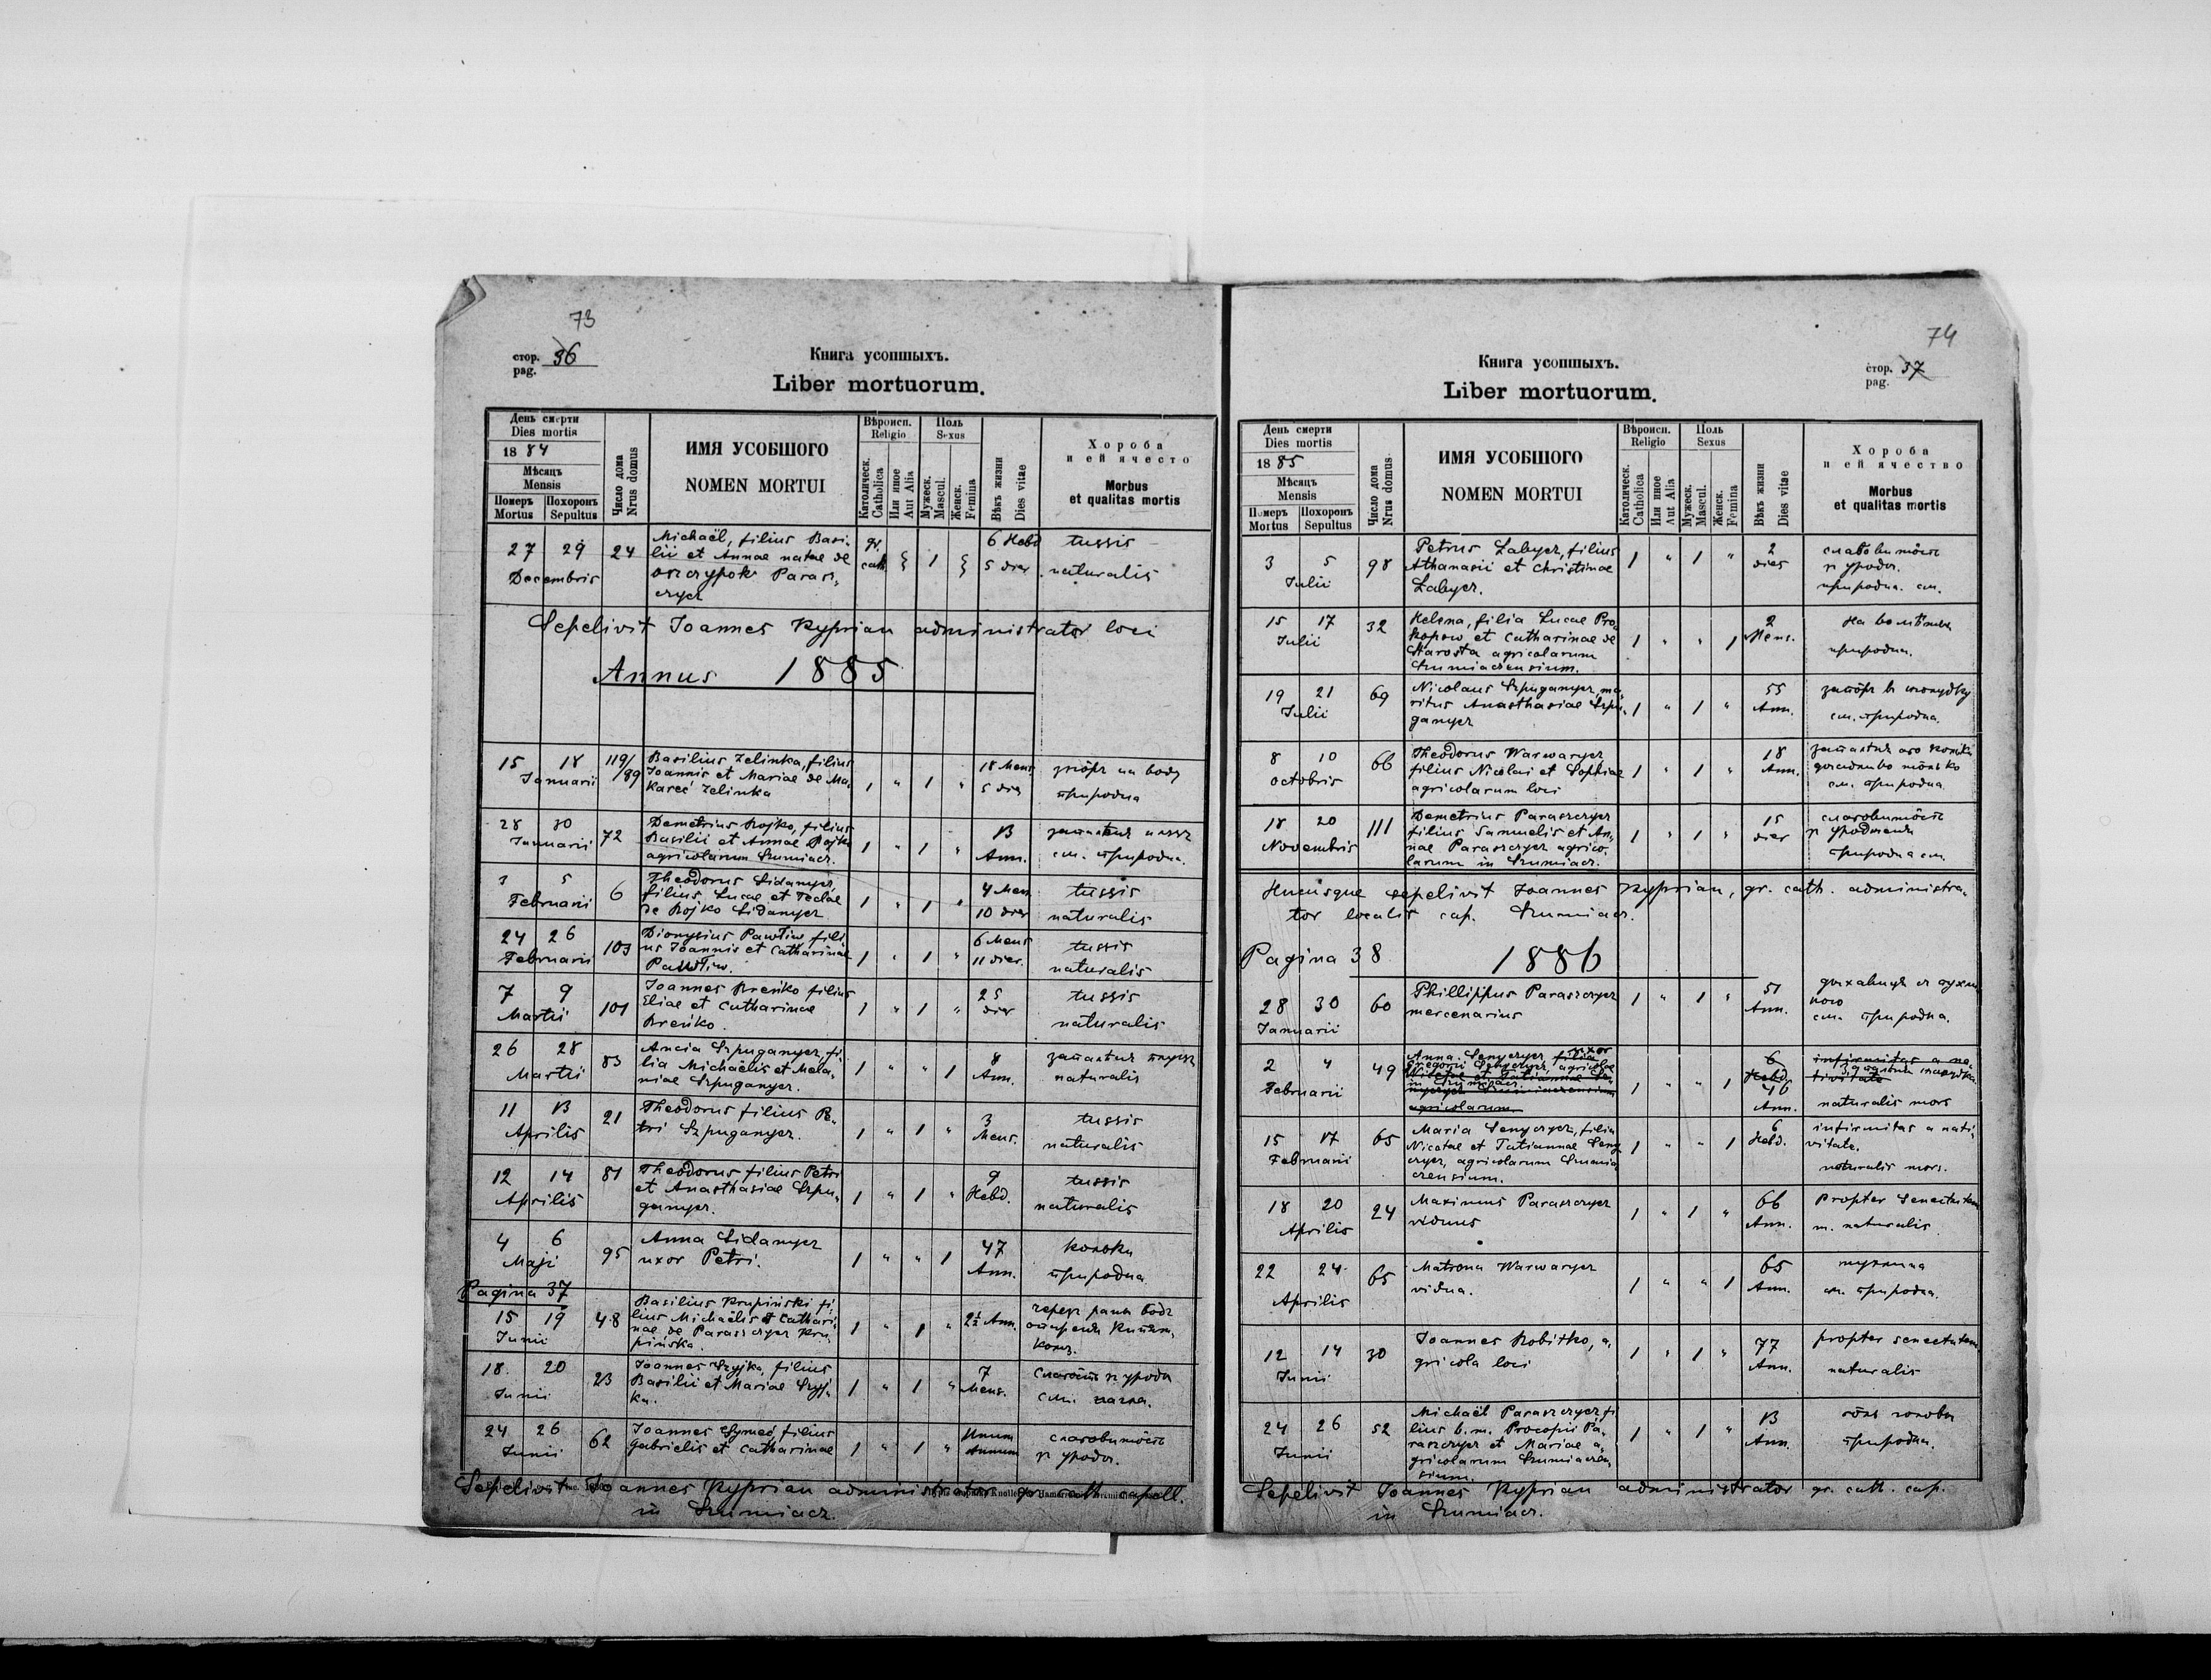 73
стор. 36
pag.
Книга усопшыхъ.
Liber mortuorum.
День смерти
Dies mortis
18 84
Мѣсяцъ
Mensis
Померъ
Mortus
Похоронъ
Sepultus
Число дома
Nrus domus
ИМЯ УСОБШОГО
NOMEN MORTUI
Вѣроисп.
Religio
Католическ.
Catholica
Или иное
Aut Alia
Поль
Sexus
Мужеск.
Mascul.
Женск.
Femina
Вѣкъ жизни
Dies vitae
Хороба
и ей ячесто
Morbus
et qualitas mortis
27 29 24
Decembris
Michaël, filius Basi-
lii et Annae natae de
Paras-
czycz
gr.
cath
1
6 Hebd
5 dier
tussis
naturalis
Sepelivit Joannes Kyprian administrator loci
Annus 1885
15 18 119/
Januarii 89
Basilius Zelinka, filius
Joannis et Mariae de Ma-
kareć Zelinka
1 " 1 "
18 Mens
5 dier
природна
28 30 72
Januarii
Demetrius Rojko, filius
Basilii et Annae Rojko
agricolarum Szumiacz.
1 " 1 "
13
Ann.
см. природна.
3 5 6
Februarii
Theodorus Sidanycz,
filius Lucae et Teclae
de Rojko Sidanycz
1 " 1 "
4 Mens
10 dier
tussis
naturalis
24 26 103
Februarii
Dionysius Pawtiw fili-
us Joannis et Catharinae
Pawtiw.
1 " 1 "
6 Mens
11 dier.
tussis
naturalis
7 9 101
Martii
Joannes Kreńko filius
Eliae et Catharinae
Kreńko.
1 " 1 "
25
dier
tussis
naturalis
26 28 83
Martii
Ancia Szpuganycz, fi-
lia Michaëlis et Mela-
niae Szpuganycz.
1 " " 1
8
Ann.
naturalis
11 13 21
Aprilis
Theodorus filius Pe-
tri Szpuganycz.
1 " 1 "
3
Mens.
tussis
naturalis
12 14 81
Aprilis
Theodorus filius Petri
et Anasthasiae Szpu-
ganycz.
1 " 1 "
9
Hebd.
tussis
naturalis
4 6 95
Maji
Anna Sidanycz
uxor Petri.
1 " " 1
47
Ann.
колька
природна
Pagina 37
15 19 48
Junii
Basilius Krupiński fi-
lius Michaëlis et Cathari-
nae de Parasczycz Kru-
pińska.
1 " 1 "
2½ Ann.
18. 20 23
Junii
Joannes Szyjka, filius
Basilii et Mariae Szyj-
ka.
1 " 1 "
7
Mens.
24 26 62
Junii
Joannes Symeć, filius
Gabrielis et Catharinae
1 " 1 "
Unum
Annum
слабовитôсть
зъ уродж.
Sepelivit Joannes Kyprian administrator gr. cath. capell.
in Szumiacz.
74
стор. 37
pag.
Книга усопшыхъ.
Liber mortuorum.
День смерти
Dies mortis
18 85
Мѣсяцъ
Mensis
Померъ
Mortus
Похоронъ
Sepultus
Число дома
Nrus domus
ИМЯ УСОБШОГО
NOMEN MORTUI
Вѣроисп.
Religio
Католическ.
Catholica
Или иное
Aut Alia
Поль
Sexus
Мужеск.
Mascul.
Женск.
Femina
Вѣкъ жизни
Dies vitae
Хороба
и ей ячество
Morbus
et qualitas mortis
3 5 98
Julii
Petrus Labycz, filius
Athanasii et Christinae
Labycz.
1 " 1 "
2
dies
слабовитôсть
зъ уродж.
природна. см.
15 17 32
Julii
Helena, filia Lucae Pro-
kopow et Catharinae de
Starosta agricolarum
Szumiaczensium.
1 " " 1
2
Mens.
природна.
19 21 69
Julii
Nicolaus Szpuganycz, ma-
ritus Anasthasiae Szpu-
ganycz
1 " 1 "
55
Ann.
см. природна.
8 10 66
Octobris
Theodorus Warwarycz
filius Nicolai et Sophiae
agricolarum loci
1 " 1 "
18
Ann.
см. природна
18 20 111
Novembris
Demetrius Parasczycz
filius Samuelis et An-
nae Parasczycz agrico-
larum in Szumiacz.
1 " 1 "
15
dier
слабовитôсть
зъ уродженя
природна см.
Hucusque sepelivit Joannes Kyprian, gr. cath. administra-
tor localis cap. Szumiacz.
Pagina 38 1886
28 30 60
Januarii
Phillippus Parasczycz
mercenarius
1 " 1 "
51
Ann.
см. природна.
2 4 49
Februarii
Anna Senyczycz filia uxor
Gregorii Senyczycz, agricolae
in Szumiacz
agricolarum
1 " " 1
6
Hebd.
46
Ann.
infirmitas a na-
tivitate
naturalis mors
15 17 65
Februarii
Maria Senyczycz, filia
Nicetae et Tatiannae Seny-
czycz, agricolarum Szumia-
czensium.
1 " " 1
6
Hebd.
infirmitas a nati-
vitate.
naturalis mors.
18 20 24
Aprilis
Maximus Parasczycz
viduus
1 " 1 "
66
Ann.
propter senectutem
m. naturalis
22 24 65
Aprilis
Matrona Warwarycz
vidua.
1 " " 1
65
Ann.
пухлина
см. природна.
12 14 30
Junii
Joannes Robitko, a-
gricola loci
1 " 1 "
77
Ann.
propter senectutem
naturalis
24 26 52
Junii
Michaël Parasczycz fi-
lius b. m. Procopii Pa-
rasczycz et Mariae a-
gricolarum Szumiaczen-
sium.
1 " 1 "
13
Ann.
бôль головы
природна.
Sepelivit Joannes Kyprian administrator gr. cath. cap.
in Szumiacz.